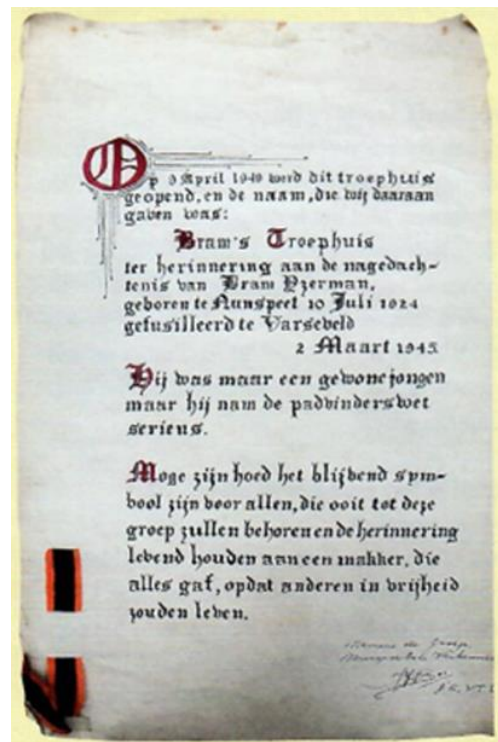 Op 9 April 1949 werd dit troephuis
geopend, en de naam, die wij daaraan
gaven was:
Bram's Troephuis
ter herinnering aan de nagedach-
tenis van Bram Yzerman,
geboren te Nunspeet 10 Juli 1924
gefusilleerd te Varseveld
2 Maart 1945
Hij was maar een gewone jongen
maar hij nam de padvinderswet
serieus.
Moge zijn hoed het blijvend sym-
bool zijn voor allen, die ooit tot deze
groep zullen behoren en de herinnering
levend houden aan een makker, die
alles gaf, opdat anderen in vrijheid
zouden leven.